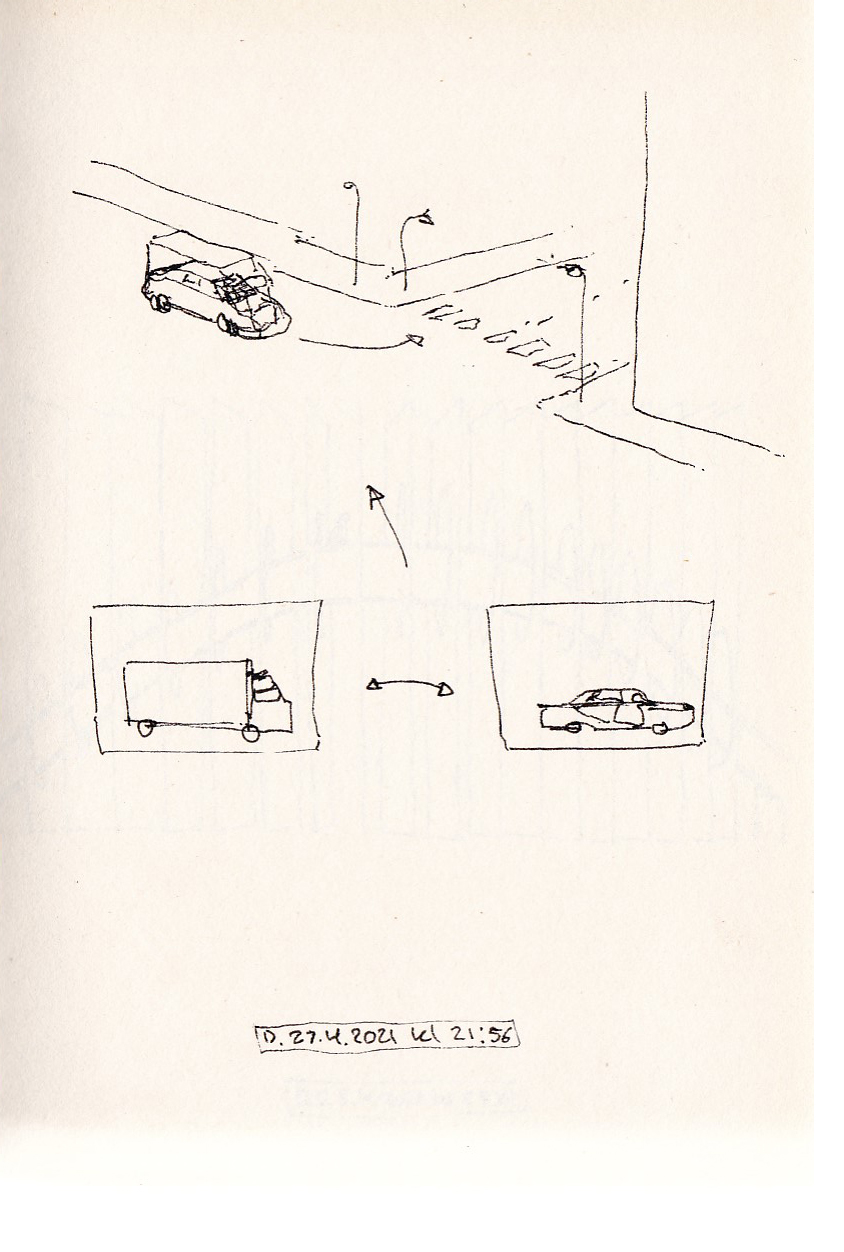 D. 27.4.2021 kl 21:56